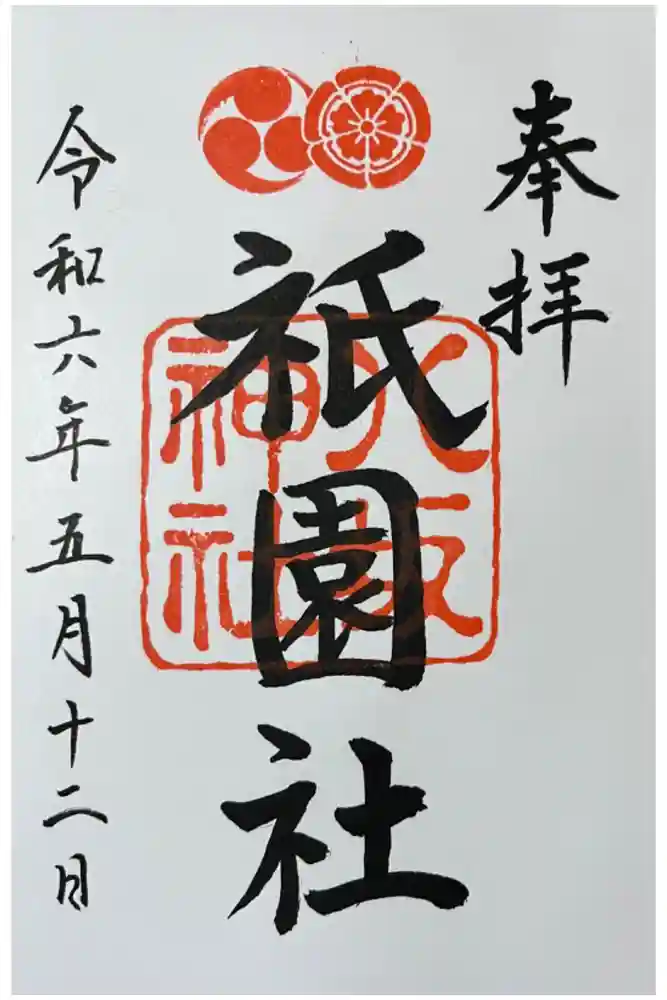 奉拝
祇園社
八坂
神社
令和六年五月十二日